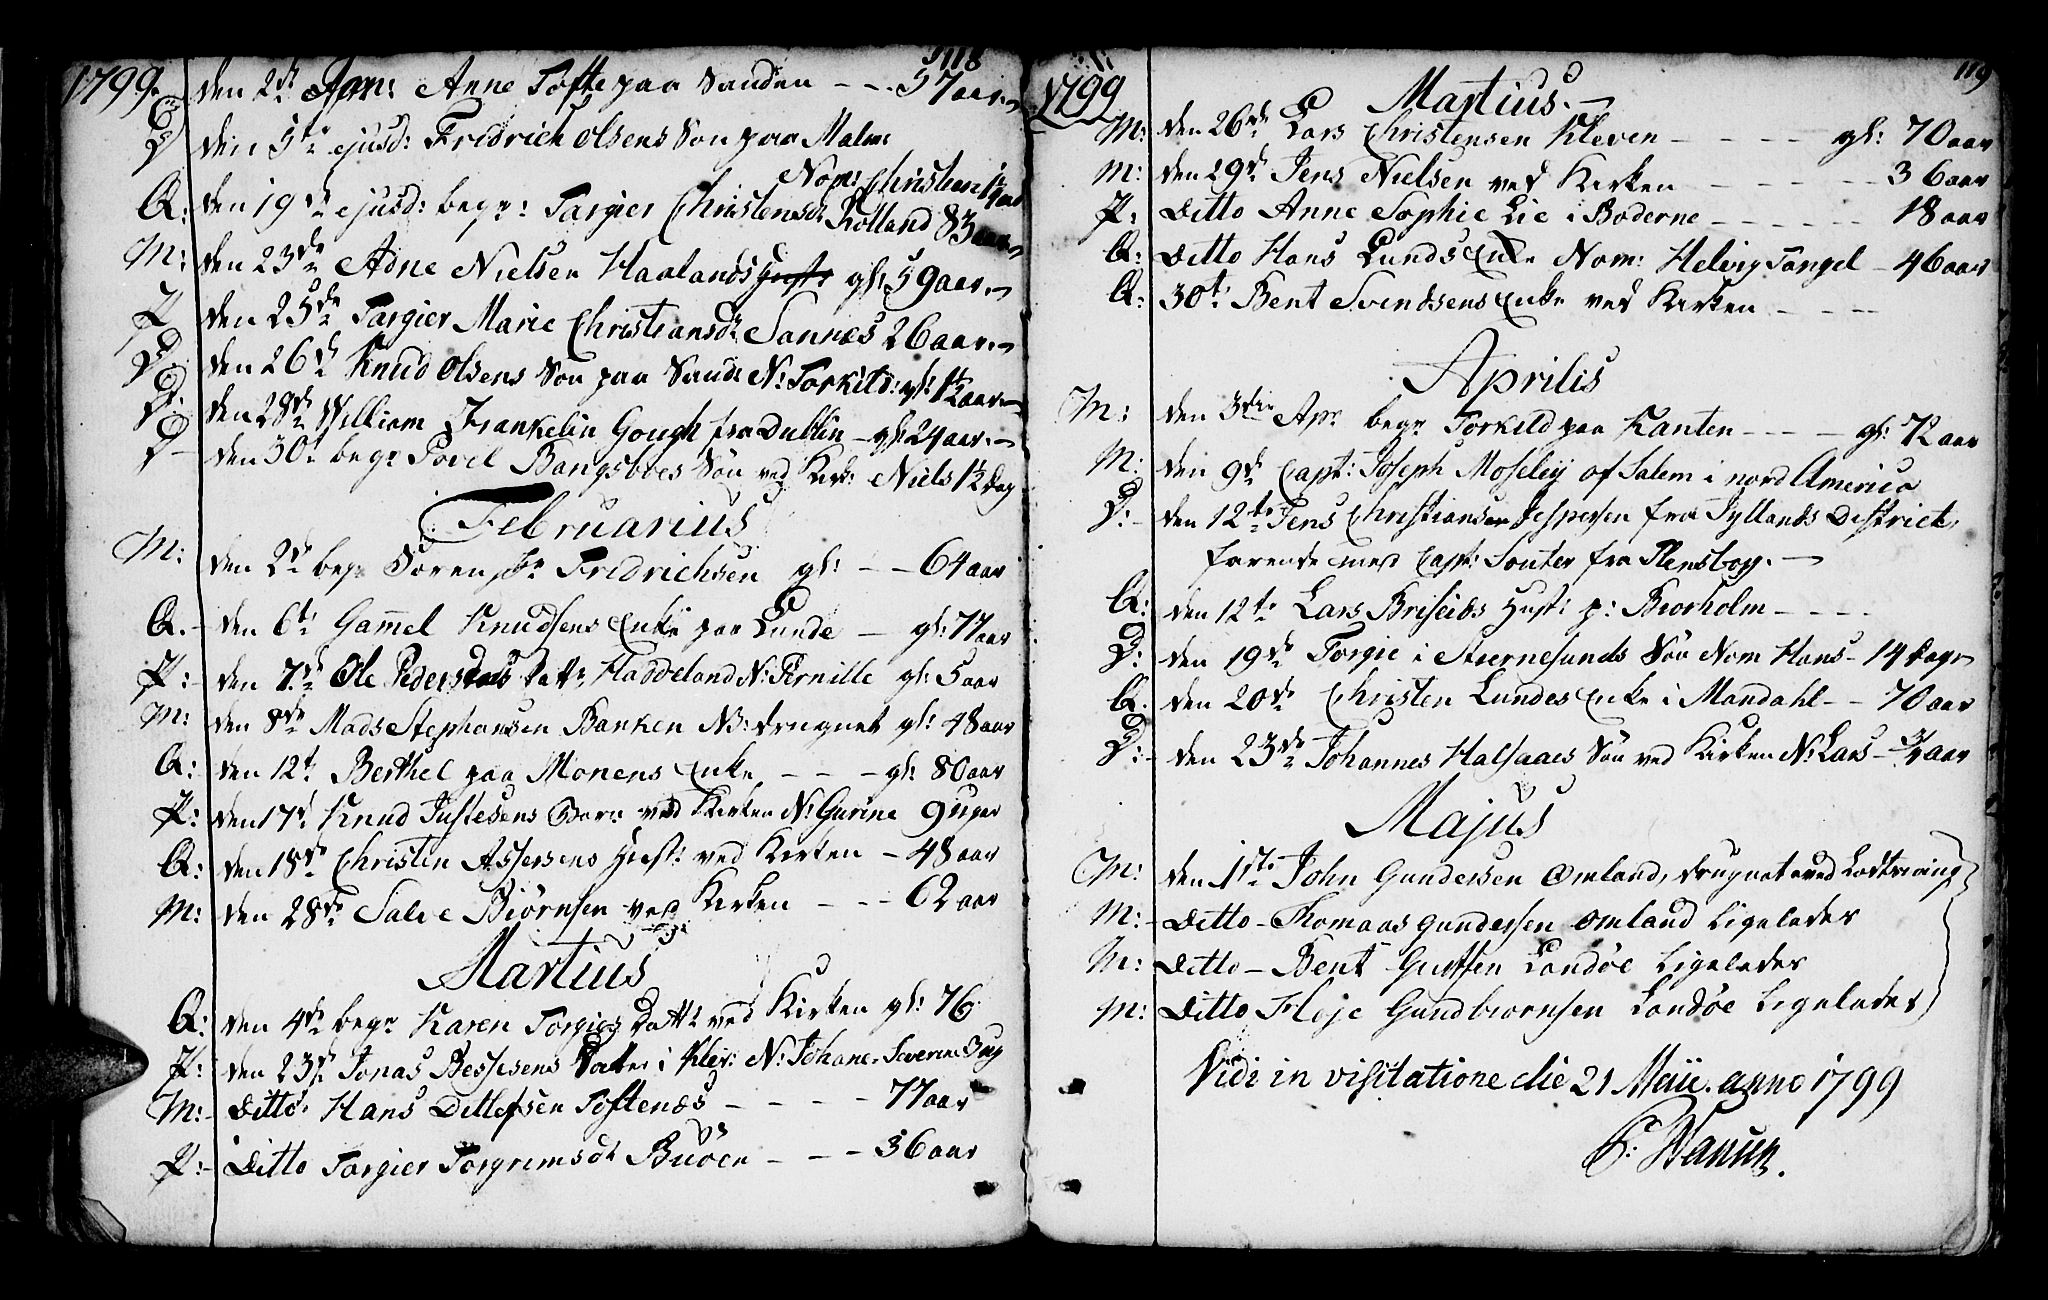 118
1799.
den 2de Jan: Anne Tofte paa Sanden - - 57 aar.
D den 5te ejusd: Fridrich Olsens Søn paa Malm:
Nom: Christian 1/4 aar
Q: den 19de ejusd: begr: Targier Christensdr Rolland 83 aar.
M: den 23de Adne Nielsen Haalands Hust: gl: 59 aar.
P den 25de Targier Marie Christiansdr Sannes 26 aar.
D. den 26de Knud Olsens Søn paa Sand: N: Torkild: gl: 1 1/2 aar.
D. den 28de William Frankelin Gough fra Dublin - gl: 24 aar.
D - den 30te begr Povel Bangsboes Søn ved Kirk: Niels 1 1/2 dag
Februarius
M: den 2de begr Søren Fredrichsen gl: - - 64 aar
Q. - den 6te Gammel Knudsens Enke paa Lunde - gl: 77 aar
P: - den 7de Ole Peders Datt: Haddeland N: Pernille gl: 5 aar
M: den 8de Mads Stephansen Banken NB: drugnet gl: 48 aar
Q: - den 12te Berthel paa Monens Enke - - - gl: 80 aar
P: den 17de Knud Justesens Barn ved Kirken N: Gurine 9 uger
Q: den 18de Christen Assersens Hust: ved Kirken - 48 aar
M: den 28de Salve Biørnsen ved Kirken - - - 62 aar
Martius
Q: den 4de begr Karen Torgies Datt: ved Kirken gl: 76
P: den 23de Jonas Bessesens Datter i Klev: N: Johane Severine 3 ug
M: - Ditto: Hans Ditlefsen Toftenes - - - - 77 aar
P: - Ditto Targier Torgrimsdr Buöen - - - 36 aar
119
1799
Martius.
M: den 26de Lars Christensen Kleven - - - - gl: 70 aar
M: den 29de Jens Nielsen ved Kirken - - - - 36 aar
P: Ditto Anne Sophie Lie i Boderne - - - - - 18 aar
Q: Ditto Hans Lunds Enke Nom: Helvig Tangel - 46 aar
Q: 30te Bent Svendsens Enke ved Kirken - - - -
Aprilis
M: den 3die Apr begr Torkild paa Kanten - - - - gl: 72 aar
M: den 9de Capt: Joseph Moseley of Salem i nord America
D: - den 12te Jens Christiansen Jespersen fra Jyllands District,
farende med Capt: Souter fra Flensborg.
Q: den 12te Lars Briseids Hust: p: Biorholm - - - -
D: den 19de Torgie i Stiernesunds Søn Nom Hans - 14 dage
Q. den 20de Christen Lundes Enke i Mandahl - - 70 aar
D: - den 23de Johannes Halsaaes Søn ved Kirken N: Lars - 3/4 aar
Majus
M: den 1ste John Gundersen Omland, drugnet ved Lodtsning
M: - Ditto - Thomaas Gundersen Omland Ligeledes
M: Ditto - Bent Gustsen Landöe Ligeledes
M: Ditto Floje Gundbiornsen Landöe Ligeledes
Vidi in visitatione die 21 Maii anno 1799
P: Hansen.